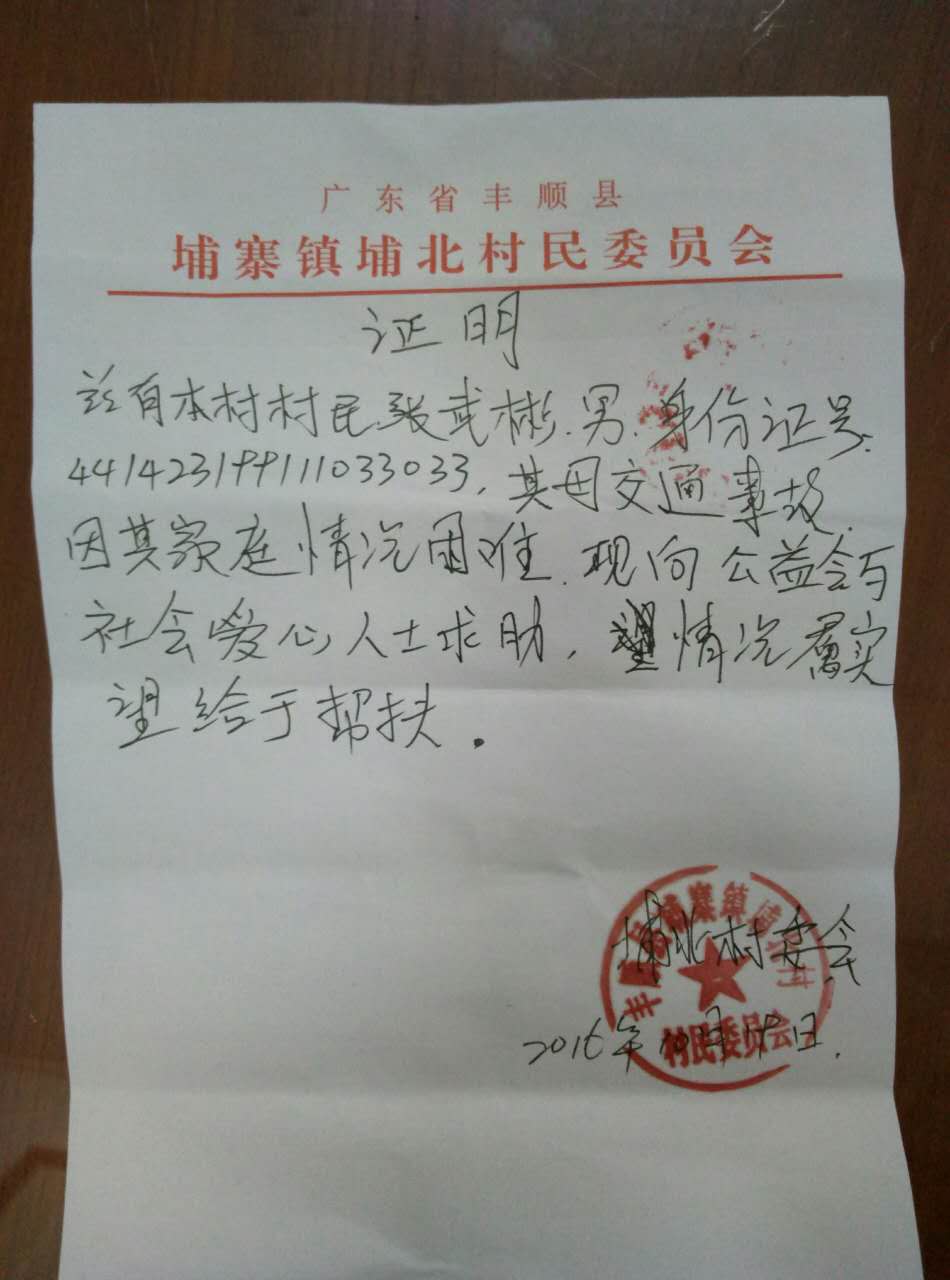 广东省丰顺县
埔寨镇埔北村民委员会
证明
兹有本村村民张武彬.男.身份证号.
441423199111033033,其母交通事故.
因其家庭情况困难.现向公益会与
社会爱心人士求助,情况属实
望给于帮扶.
埔北村委会
2016年10月19日.
丰顺县埔寨镇埔北村
村民委员会